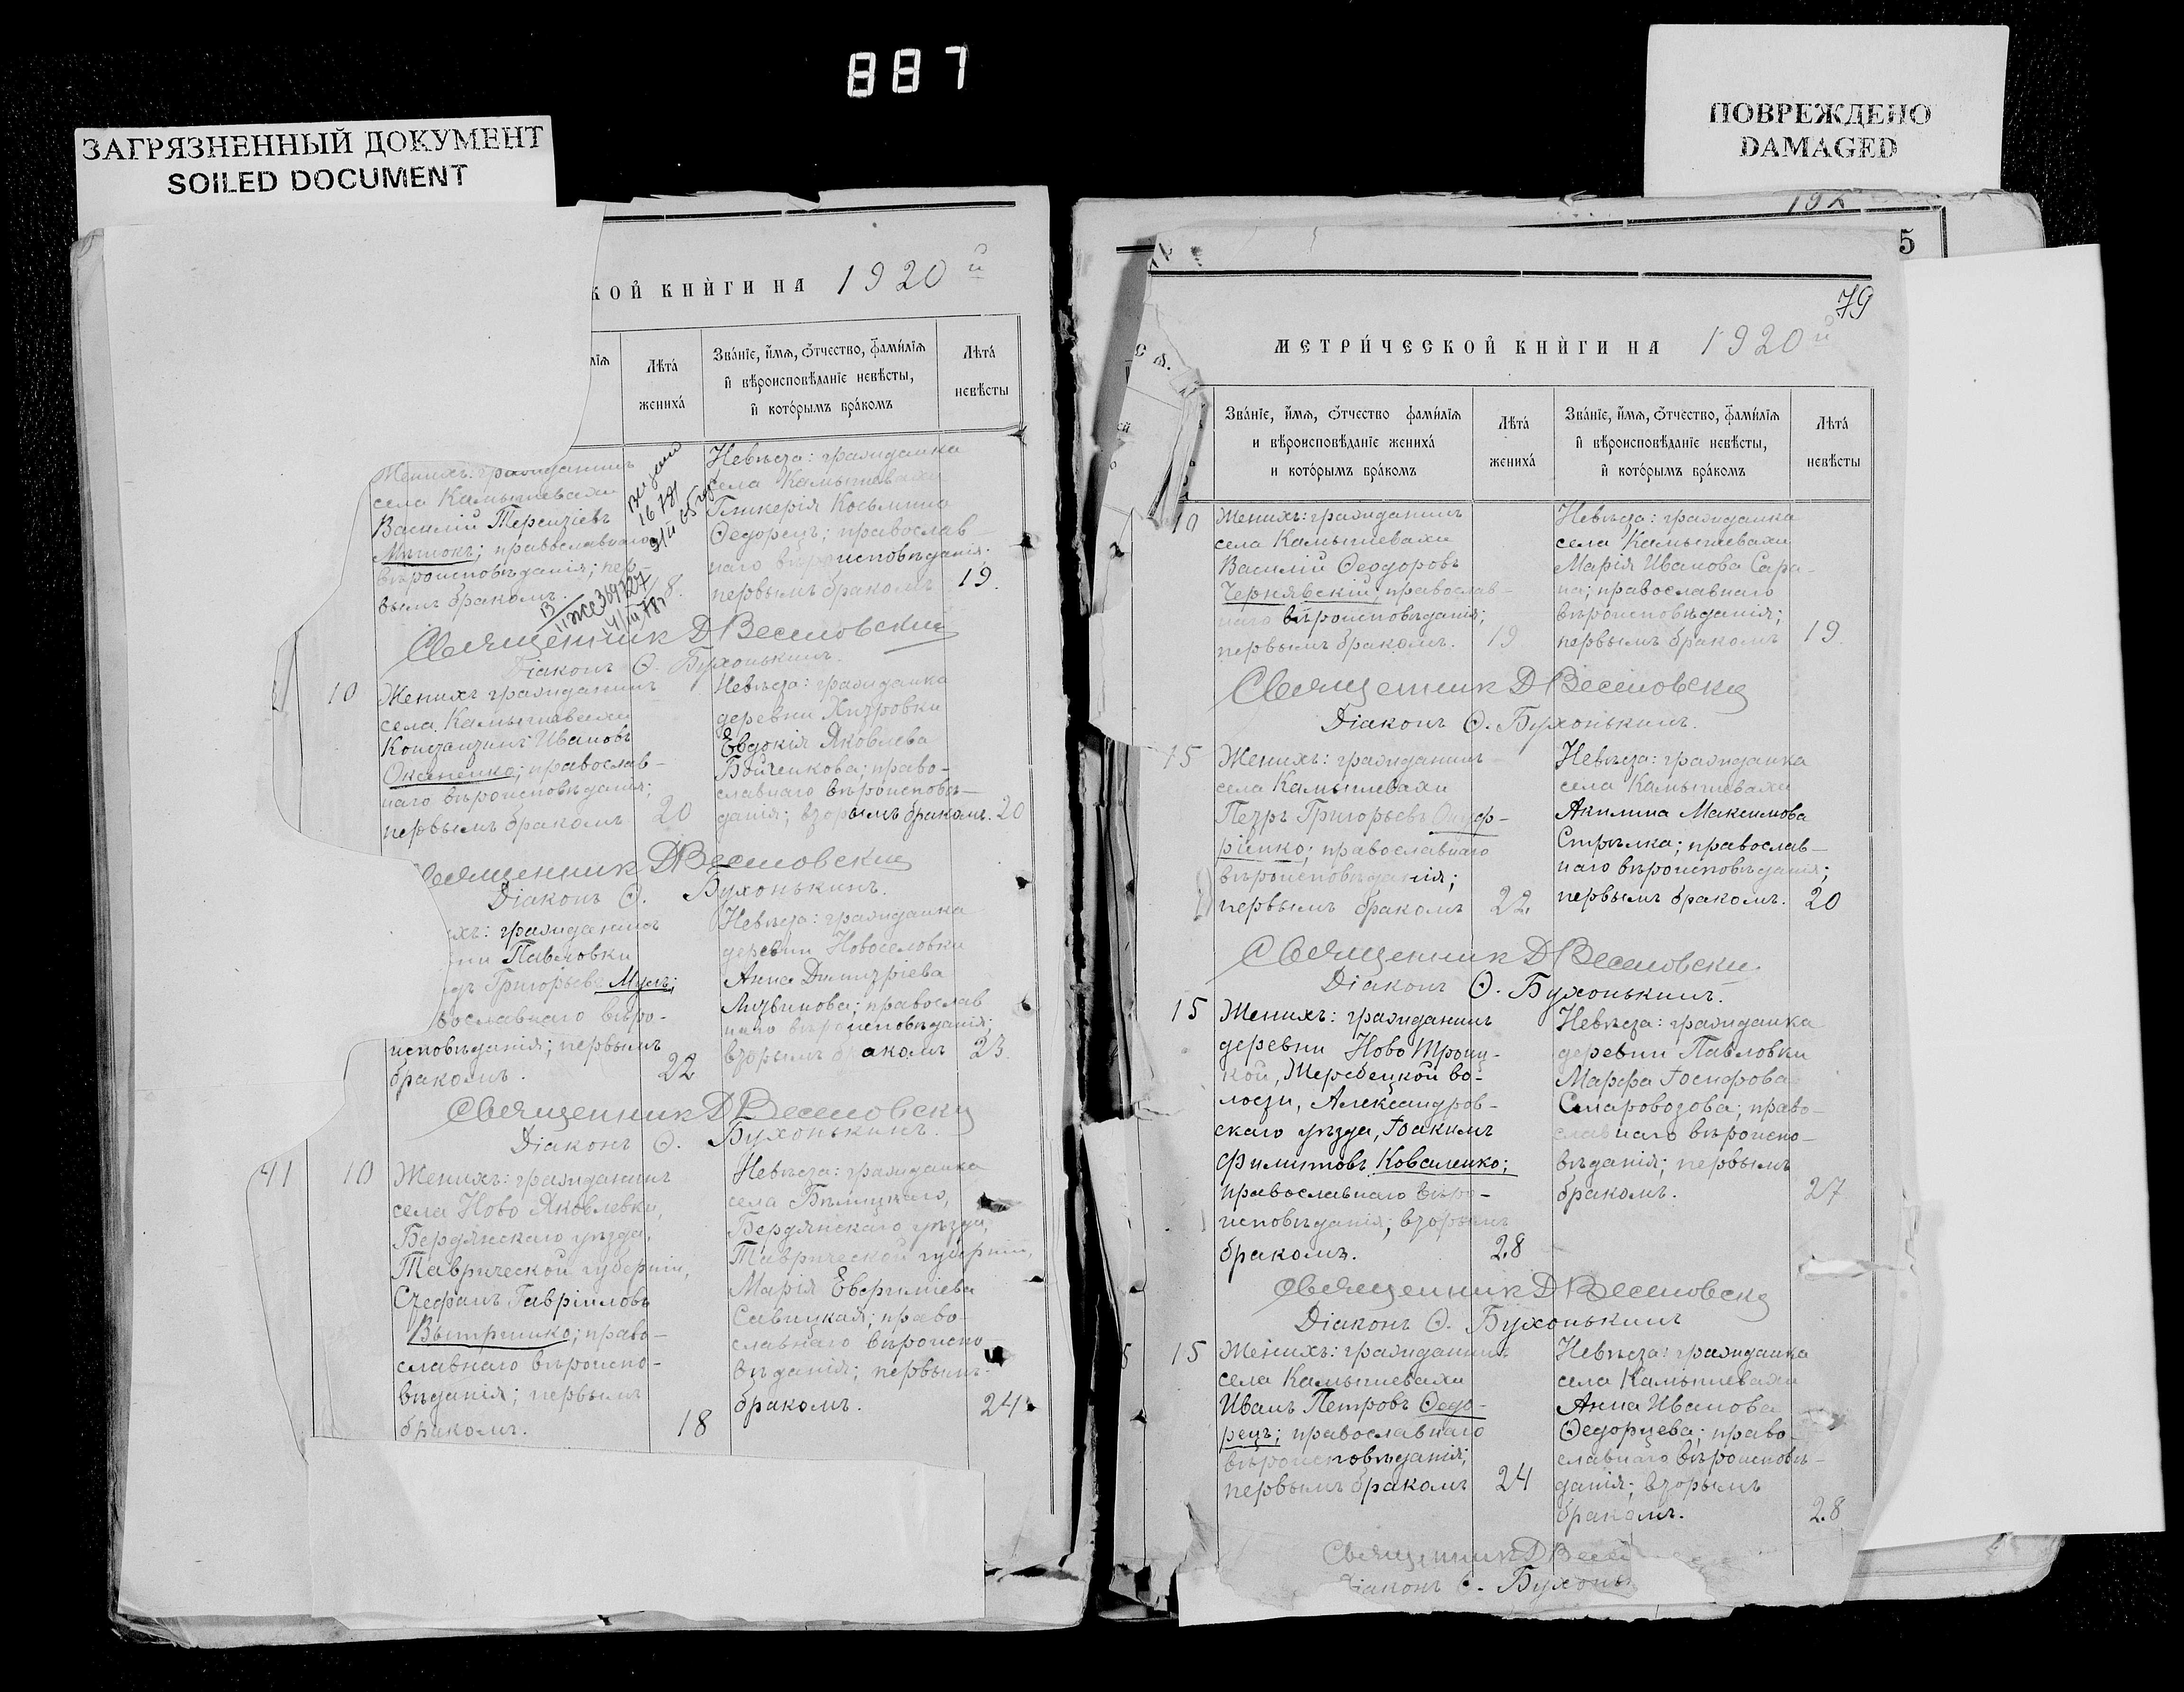 887
ЗАГРЯЗНЕННЫЙ ДОКУМЕНТ
SOILED DOCUMENT
ПОВРЕЖДЕНО
DAMAGED
КОЙ КНИГИ НА 1920 й
лія
Лѣта
жениха
Званіе, имя, отчество, фамилія
и вѣроисповѣданіе невѣсты,
и которымъ бракомъ
Лѣта
невѣсты
Женихъ: гражданинъ
села Камышевахи
Василій Терентіевъ
православнаго
вѣроисповѣданія; пер-
вымъ бракомъ. 18.
Невѣста: гражданка
села Камышевахи
Гликерія Косьмина
Ѳедорецъ; православ-
наго вѣроисповѣданія.
первымъ бракомъ 19.
Священникъ Д Веселовский
Діаконъ Ѳ. Бухонькинъ.
10
Женихъ гражданинъ
села Камышевахи
Константинъ Ивановъ
Оксененко; православ-
наго вѣроисповѣданія;
первымъ бракомъ 20
Невѣста: гражданка
деревни
Евдокія Яковлева
Бойченкова; право-
славнаго вѣроисповѣ-
данія; вторымъ бракомъ. 20
Священникъ Д Веселовский
Діаконъ Ѳ. Бухонькинъ.
хъ: гражданинъ
ни Павловки
Григорьевъ Мухъ;
вославнаго вѣро-
исповѣданія; первымъ
бракомъ. 22
Невѣста: гражданка
деревни Новоселовки
Анна Димитріева
Литвинова; православ
наго вѣроисповѣданія;
вторымъ бракомъ 23.
Священникъ Д Веселовский
Діаконъ Ѳ. Бухонькинъ.
41 10
Женихъ: гражданинъ
села Ново Яковлевки,
Бердянскаго уѣзда,
Таврической губерніи,
Стефанъ Гавріиловъ
право-
славнаго вѣроиспо-
вѣданія; первымъ
бракомъ. 18
Невѣста: гражданка
села
Бердянскаго уѣзда,
Таврической губерніи,
Марія Евфиміева
Савицкая; право-
славнаго вѣроиспо-
вѣданія; первымъ
бракомъ. 24
5
79
МЕТРИЧЕСКОЙ КНИГИ НА 1920 й
Званіе, имя, отчество фамилія
и вѣроисповѣданіе жениха
и которымъ бракомъ
Лѣта
жениха
Званіе, имя, отчество, фамилія
и вѣроисповѣданіе невѣсты,
и которымъ бракомъ
Лѣта
невѣсты
10
Женихъ: гражданинъ
села Камышевахи
Василій Ѳеодоровъ
Чернявскій; православ-
наго вѣроисповѣданія;
первымъ бракомъ. 19
Невѣста: гражданка
села Камышевахи
Марія Иванова Сара-
на; православнаго
вѣроисповѣданія;
первымъ бракомъ 19.
Священникъ Д Веселовский
Діаконъ Ѳ. Бухонькинъ.
15
Женихъ: гражданинъ
села Камышевахи
Петръ Григорьевъ Онуф-
ріенко; православнаго
вѣроисповѣданія;
первымъ бракомъ 22.
Невѣста: гражданка
села Камышевахи
Акилина Максимова
Стрѣлка; православ-
наго вѣроисповѣданія;
первымъ бракомъ. 20
Священникъ Д Веселовский
Діаконъ Ѳ. Бухонькинъ.
15
Женихъ: гражданинъ
деревни Ново Троиц-
кой, Жеребецкой во-
лости, Александров-
скаго уѣзда, Іоакимъ
Филиповъ Коваленко;
православнаго вѣро-
исповѣданія; вторымъ
бракомъ. 28
Невѣста: гражданка
деревни Павловки
Марфа Іосифова
Старовозова; право-
славнаго вѣроиспо-
вѣданія; первымъ
бракомъ. 27
Священникъ Д Веселовский
Діаконъ Ѳ. Бухонькинъ
15
Женихъ: гражданинъ
села Камышевахи
Иванъ Петровъ Ѳедо-
рецъ; православнаго
вѣроисповѣданія;
первымъ бракомъ 24
Невѣста: гражданка
села Камышевахи
Анна Иванова
Ѳедорцева; право-
славнаго вѣроисповѣ-
данія; вторымъ
бракомъ. 28
Священникъ Д Весел
Діаконъ Ѳ. Бухонь